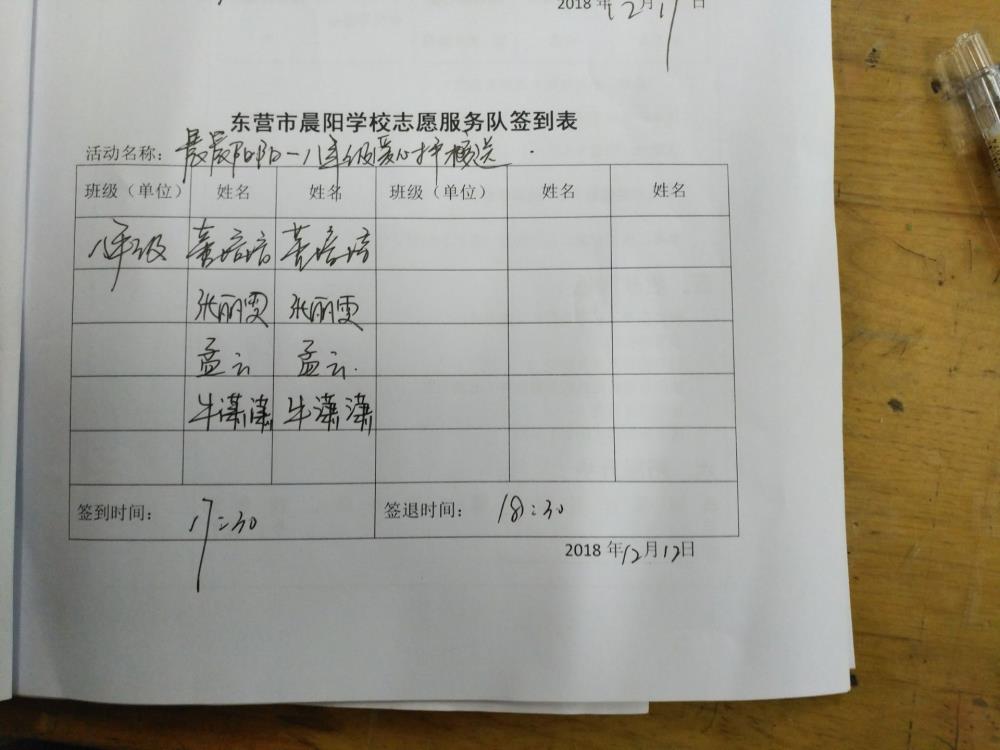 2018 年12月17日
东营市晨阳学校志愿服务队签到表
活动名称： 晨晨阳阳一八年级爱心护送
班级（单位） 姓名 姓名 班级（单位） 姓名 姓名
八年级 董培培 董培培
张丽雯 张丽雯
孟云 孟云.
牛潇潇 牛潇潇
签到时间： 17:30 签退时间： 18:30
2018 年12月17日